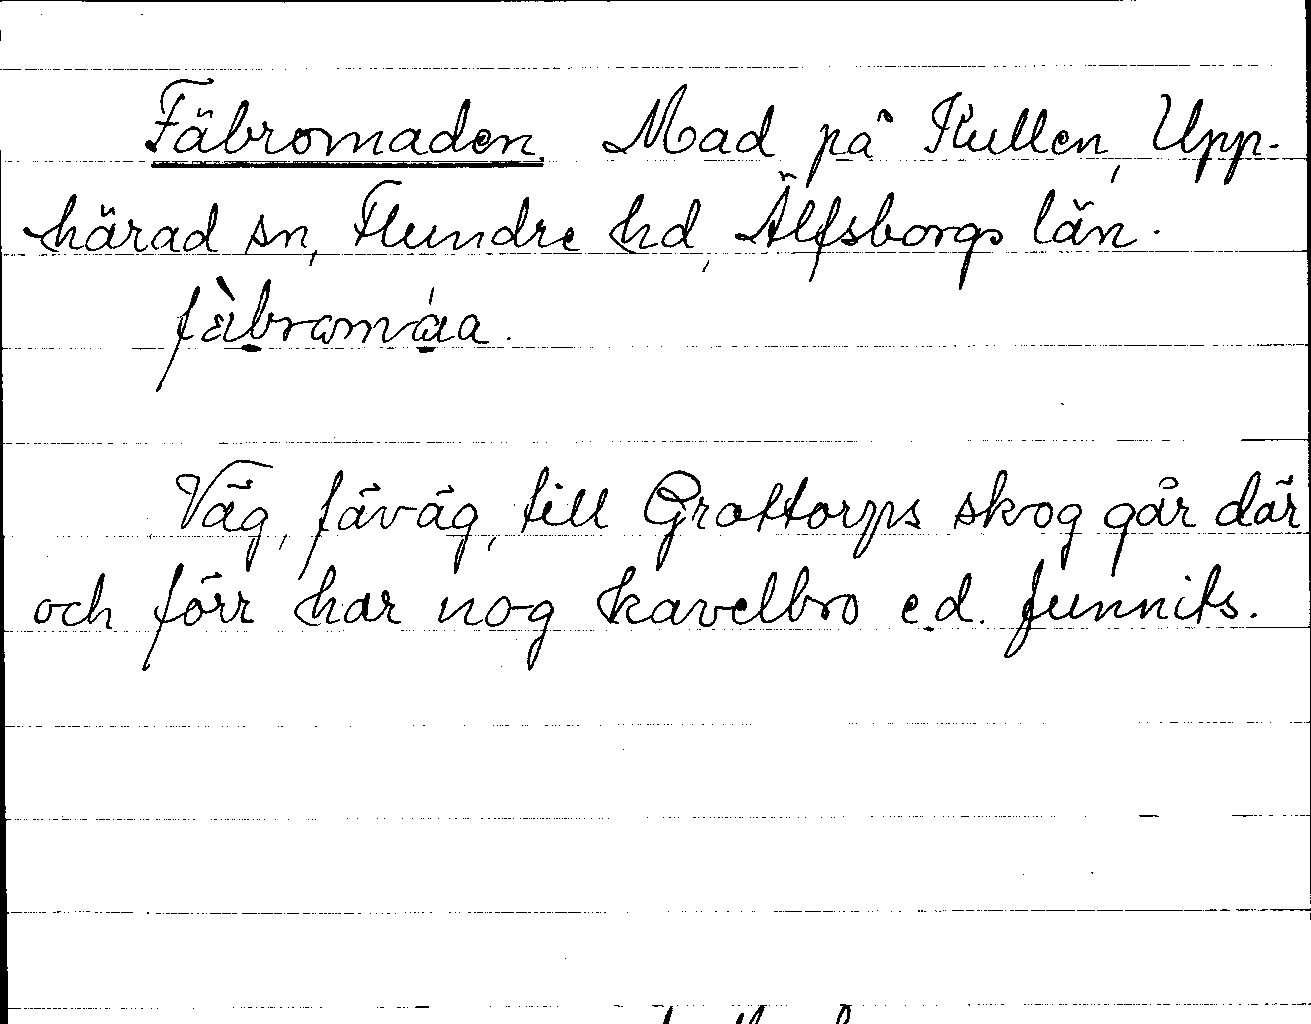 Fäbromaden. Mad på Kullen, Upp-
härad sn, Flundre hd, Älfsborgs län.
fàbromáa.
Väg, fäväg, till Grottorps skog går där
och förr har nog kavelbro e.d. funnits.